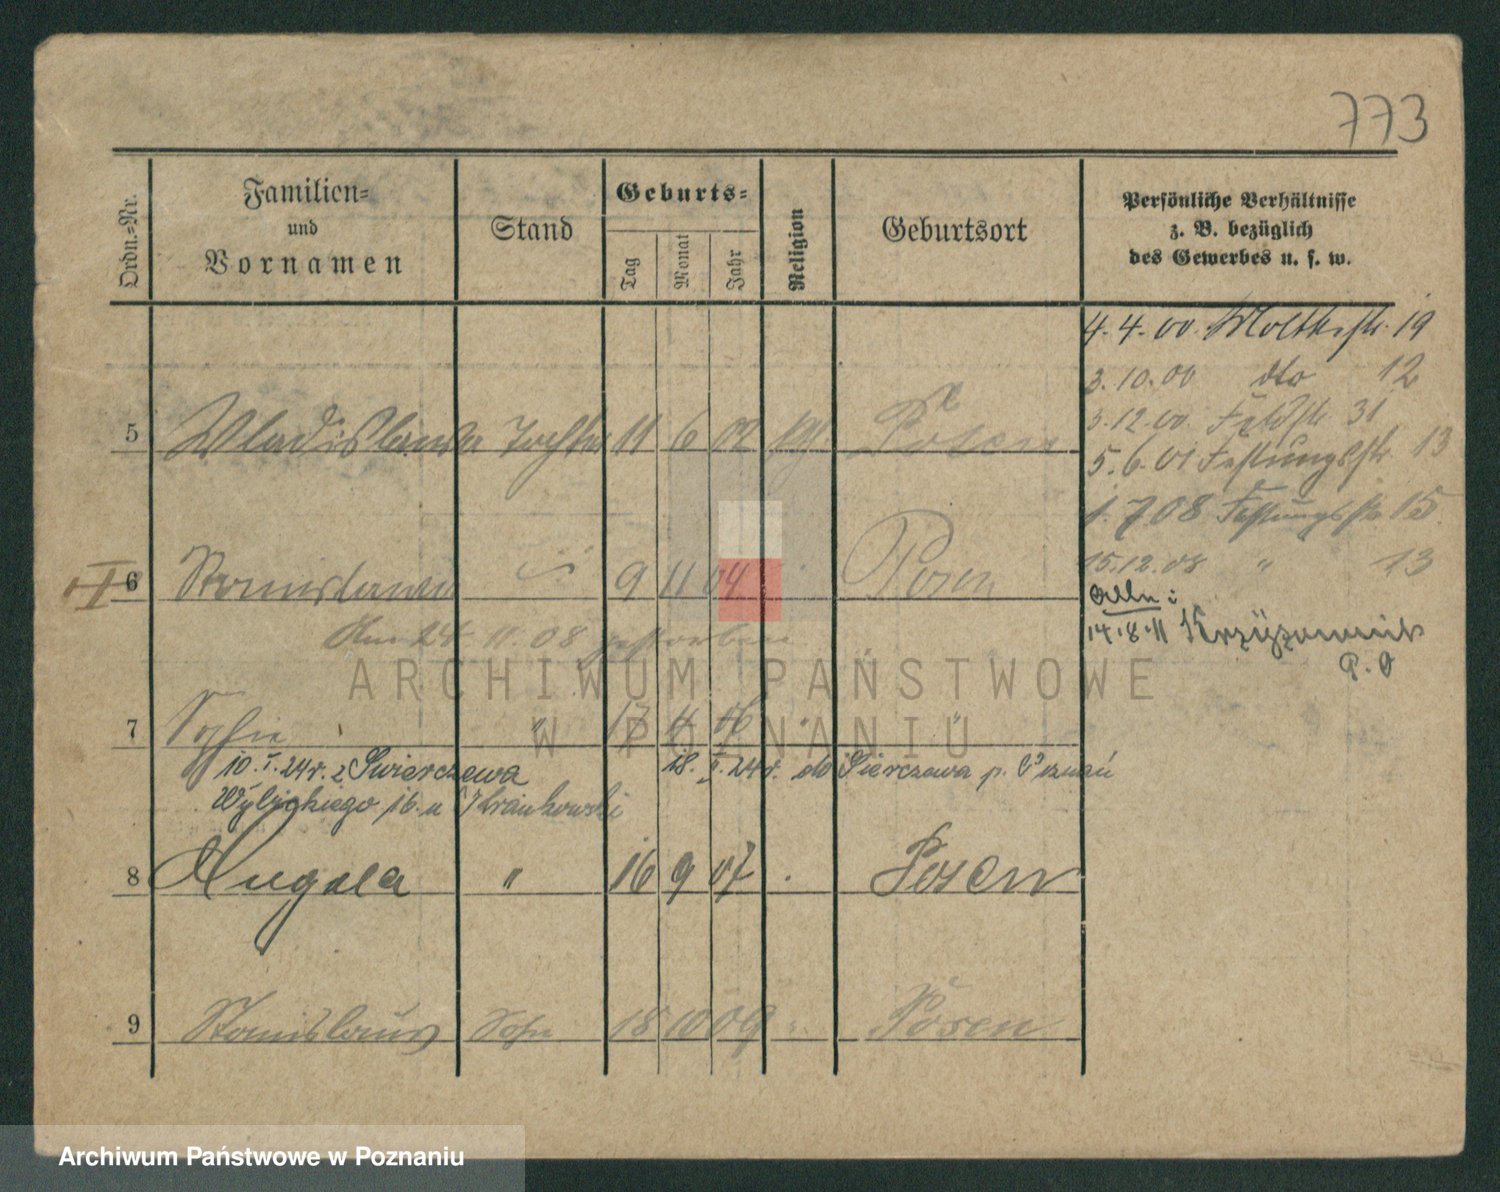 773
Ordn.=Nr.
Familien=
und
Vornamen
Stand
Geburts=
Tag
Monat
Jahr
Religion
Geburtsort
Persönliche Verhältnisse
z. B. bezüglich
des Gewerbes u. s. w.
4. 4. 00. Moltkestr. 19
3. 10. 00 dto 12
3. 12. 00. Feldstr. 31
5 Wladislawa Tochter 11 6 02 Posen
5. 6. 01 Festungsstr. 13
1. 7 08 Festungsstr 15
6 Stanislawa 9 11 04 Posen
15.12.08 " 13
Am 24. 11. 08 gestorben
14.8.11
P. O
7 Sophie " 17 4 06 "
10. I. 24r. z Swierczewa 18. I. 24r. do Sierczewa p. Poznań
Wybickiego 16. u
8 " 16 9 07 Posen
9 Stanislaus Sohn 18 10 09 " Posen
ARCHIWUM PAŃSTWOWE
W POZNANIU
Archiwum Państwowe w Poznaniu